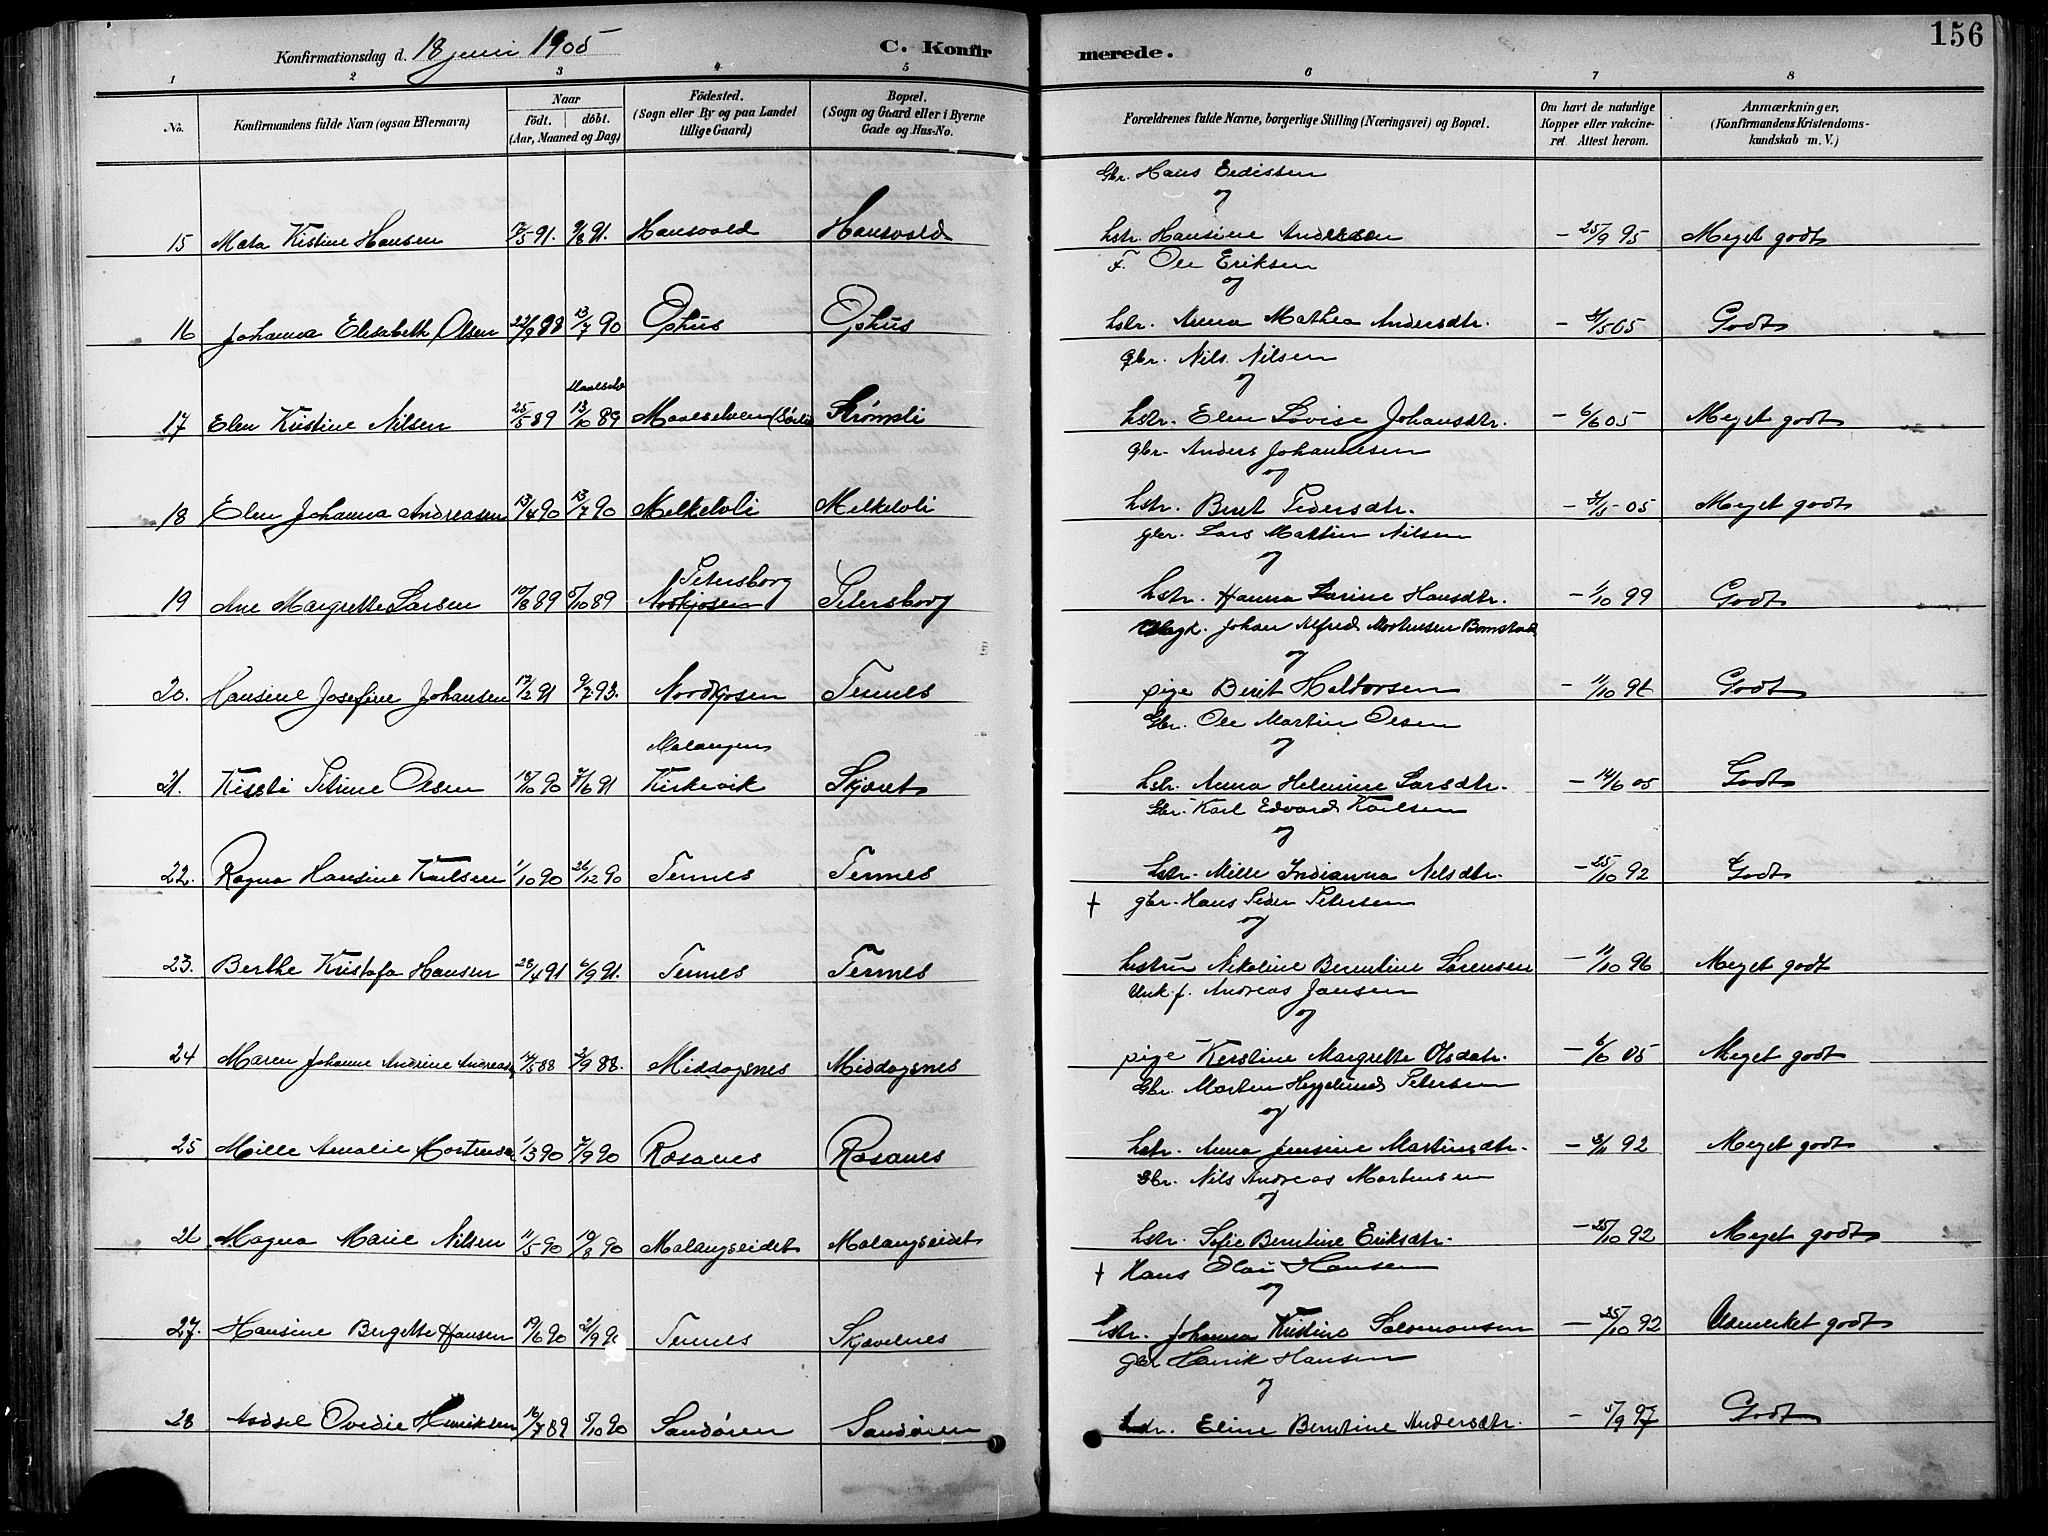 156
Konfirmationsdag d. 18 juni 1905 C. Konfirmerede.
1 2 3 4 5 6 7 8
No. Konfirmandens fulde Navn (ogsaa Efternavn) Naar født. døbt. (Aar, Maaned og Dag) Fødested. (Sogn eller By og paa Landet tillige Gaard) Bopæl. (Sogn og Gaard eller i Byerne Gade og Hus-No. Forældrenes fulde Navne, borgerlige Stilling (Næringsvei) og Bopæl. Om havt de naturlige Kopper eller vakcineret. Attest herom. Anmærkninger, (Konfirmandens Kristendomskundskab m. V.)
Gbr. Hans Eedissen
og
15 Meta Kistine Hansen 17/5 91. 9/8 91. Hansvold Hansvold hstr. Hansine Andersen - 25/9 95 Meget godt
F. Ole Eriksen
og
16 Johanna Elisabeth Olsen 22/9 88 13/7 90 Ophus Ophus hstr. Anna Mathea Andersdtr. - 3/5 05 Godt
gbr. Nils Nilsen
og
17 Elen Kristine Nilsen 25/5 89 Maalselv 13/10 89 Maalselven Strømsli hstr. Elen Lovise Johansdtr. - 6/6 05 Meget godt
gbr. Anders Johannesen
og
18 Elen Johanna Andreasen 13/4 90 13/7 90 Melkelvli Melkelvli hstr. Berit Pedersdtr. 05 Meget godt
gbr. Lars Mattin Nilsen
og
19 Ane Margrette Larsen 17/8 89 6/10 89 Petersborg Nordkjosen Petersborg hstr. Hanna Larine Hansdtr. - 1/10 99 Godt
Ungk. Johan Alfred Mortensen Bomstad
og
20. Hansine Josefine Johansen 17/2 91 9/7 93. Nordkjosen Tennes pige Berit Heldorsen - 11/10 96 Godt
Gbr. Ole Martin Olsen
og
21. Kirsti Petrine Olsen 18/10 90 7/6 91 Malangen Kirkevik Skjæret hstr. Anna Helmine Larsdtr. - 14/6 05 Godt
Gbr. Karl Edvard Karlsen
og
22. Ragna Hansine Karlsen 1/10 90 26/12 90 Tennes Tennes hstr. Mille Indianna Nilsdtr. - 25/10 92 Godt
† gbr. Hans Peder Petersen
og
23. Berthe Kristofa Hansen 28/4 91 6/9 91. Tennes Tennes hustru Nikoline Berntine Sørensen - 11/10 96 Meget godt
Unk. f. Andreas Jansen
og
24 Maren Johanne Andrine Andreasen 14/5 88 2/9 88. Middagsnes Middagsnes pige Kerstine Margrette Olsdatr. - 6/6 05 Meget godt
Gbr. Morten Heggelund Petersen
og
25 Mille Amalie Mortensen 1/3 90 7/9 90 Rosanes Rosanes hstr. Anna Jensine Martinsdtr. - 3/11 92 Meget godt
Gbr. Nils Andreas Mortensen
og
26 Magna Marie Nilsen 11/5 90 10/8 90 Malangseidet Malangseidet hstr. Sofie Berntine Eriksdtr. - 25/10 92 Meget godt
† Hans Olai Hansen
og
27. Hansine Bergette Hansen 19/6 90 21/9 90 Tennes Skjævelnes hstr. Johanna Kristine Salomonsen - 25/10 92 Udmerket godt
gbr Henrik Hansen
og
28 Aodsel Ovedie Henriksen 16/7 89 5/10 90 Sandøren Sandøren hstr. Eline Berntine Andersdtr. - 5/9 97 Godt